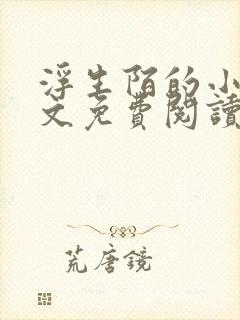 浮生陌的小
文免費閱讀
荒唐鏡